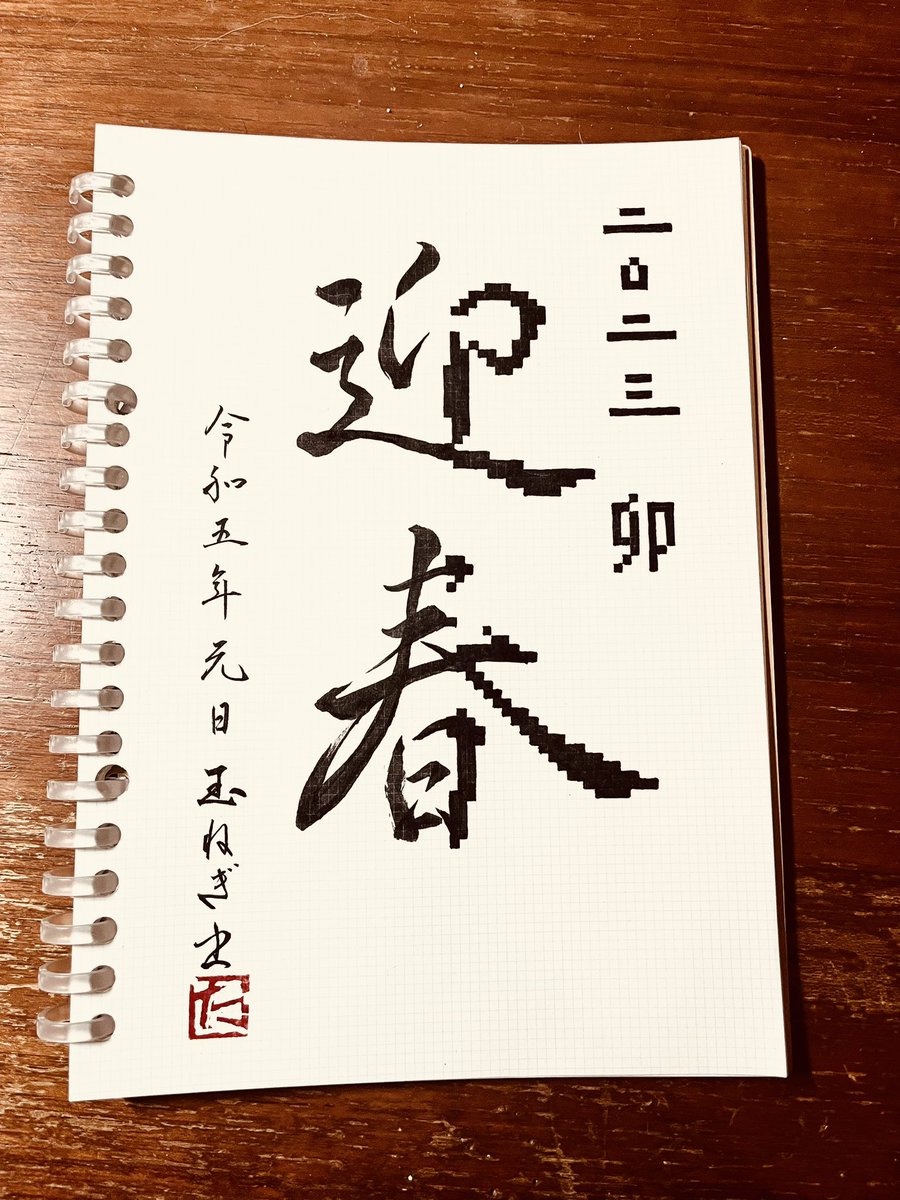 二〇二三 卯
迎春
令和五年元日 玉ねぎ書
た